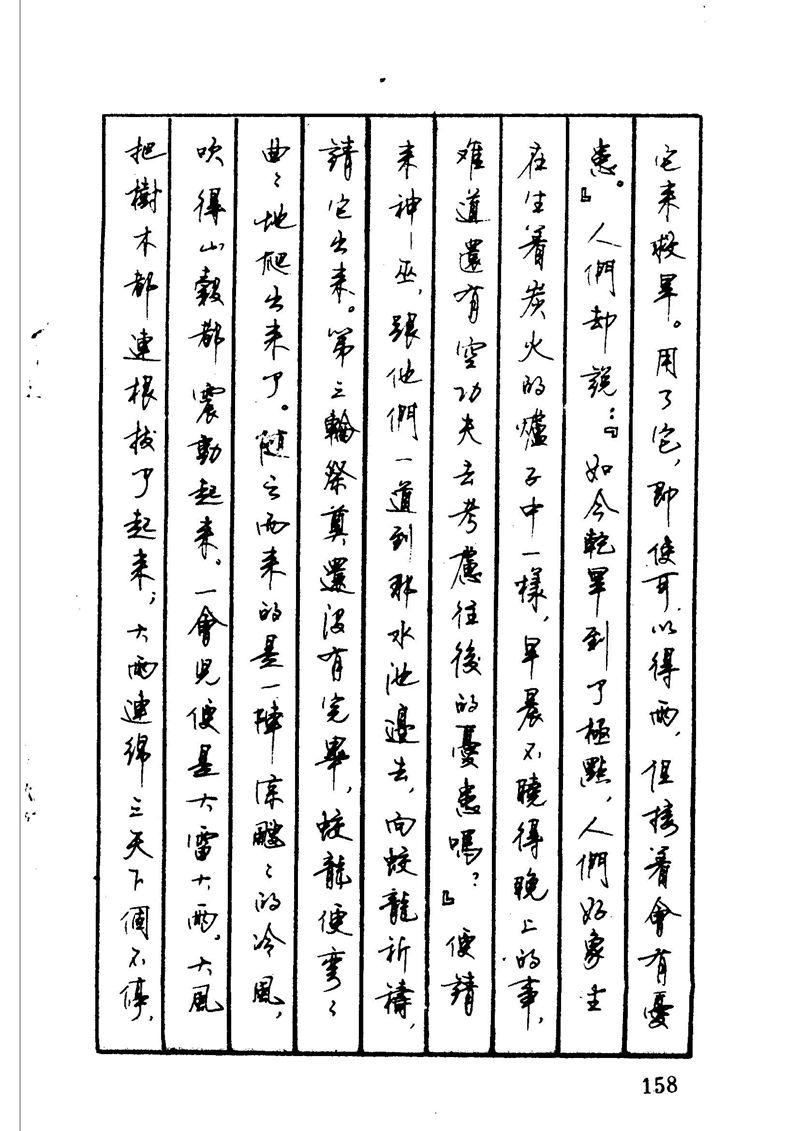 它来救旱。用了它，即使可以得雨，但接着會有憂
患。』人們却說：『如今乾旱到了極點，人們好象生
在生着炭火的爐子中一樣，早晨不曉得晚上的事，
难道還有空功夫去考慮往後的憂患嗎？』便請
来神巫，跟他們一道到那水池邊去，向蛟龍祈禱，
請它出来。第三輪祭奠還没有完畢，蛟龍便弯〻
曲〻地爬出来了。随之而来的是一陣凉飕〻的冷風，
吹得山穀都震動起来。一會兒便是大雷大雨，大風
把樹木都連根拔了起来；大雨連綿三天下個不停，
158